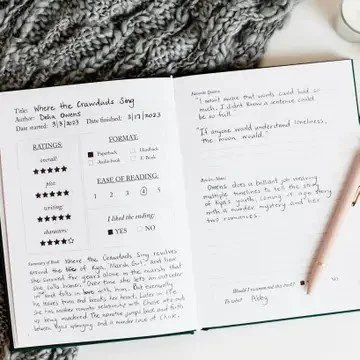 Title: Where the Crawdads Sing
Author: Delia Owens
Date started: 3/3/2023 Date finished: 3/17/2023
RATINGS:
overall:
plot:
writing:
characters:
FORMAT:
Paperback Hardback
Audiobook E-Book
EASE OF READING:
1 2 3 4 5
I liked the ending:
YES NO
Summary of Book: Where the Crawdads Sing revolves
around the life of Kya, "Marsh Girl", and how
she survived for years alone in the marsh that
she calls home. Over time she lets an outsider
in and falls in love with him. But eventually
he leaves her and breaks her heart. Later in life
she has another romantic relationship with Chase who ends
up being murdered. The narrative jumps back and forth
between Kya's youth and a murder case of Chase.
Favorite Quotes:
"I wasn't aware that words could hold so
much. I didn't know a sentence could
be so full."
"If anyone would understand loneliness,
the moon would."
Owens does a brilliant job weaving
multiple timelines to tell the story
of Kya's youth, coming of age story
with a murder mystery and her
two romances.
Would I recommend this book?